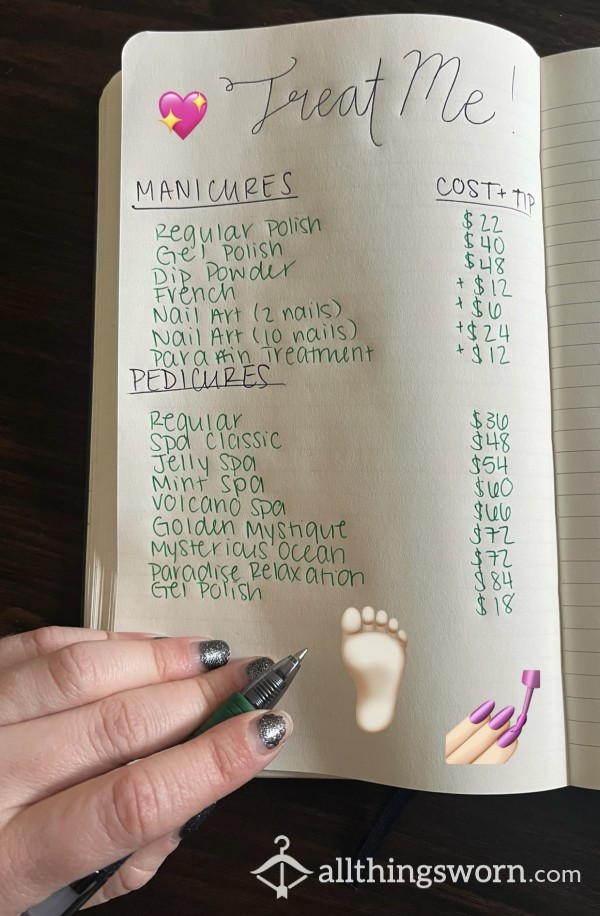 Treat Me!
MANICURES COST + TIP
Regular Polish $22
Gel Polish $40
Dip Powder $48
French +$12
Nail Art (2 nails) +$6
Nail Art (10 nails) +$24
Paraffin Treatment +$12
PEDICURES
Regular $36
Spa Classic $48
Jelly Spa $54
Mint Spa $60
Volcano Spa $66
Golden Mystique $72
Mysterious Ocean $72
Paradise Relaxation $84
Gel Polish $18
allthingsworn.com